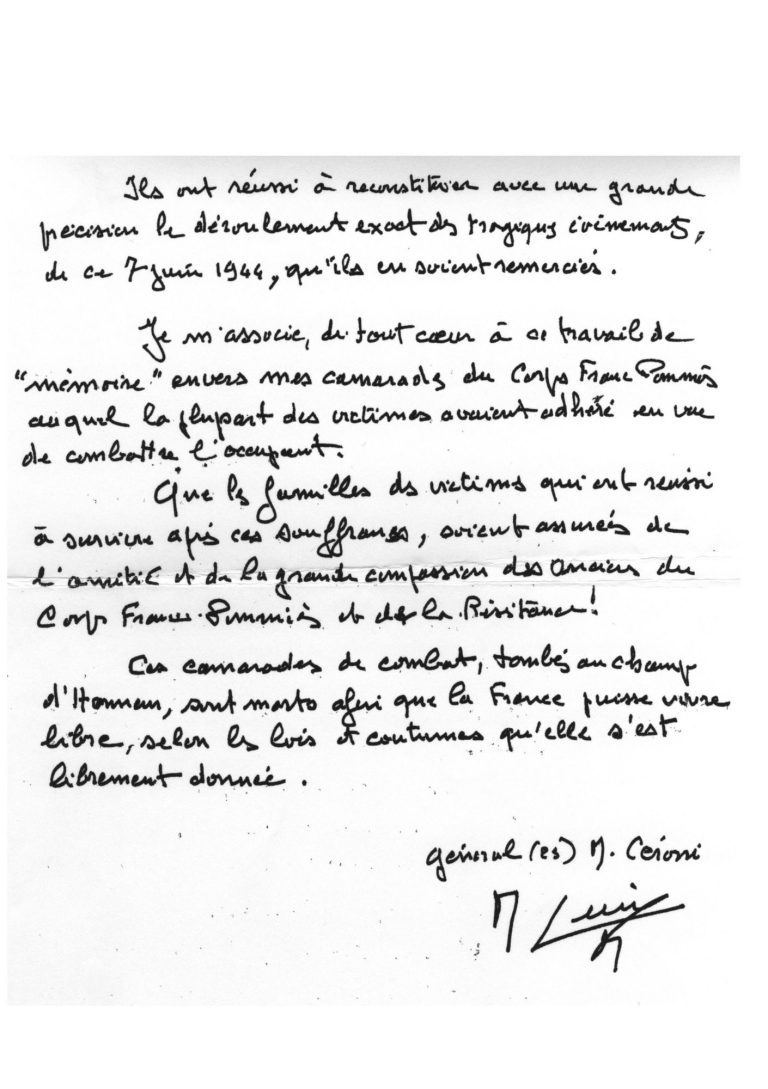 Ils ont réussi à reconstituer avec une grande
précision le déroulement exact des tragiques évènements,
de ce 7 juin 1944, qu'ils en soient remerciés.
Je m'associe, de tout cœur à ce travail de
"mémoire" envers mes camarades du Corps Franc Pommiès
auquel la plupart des victimes avaient adhéré en vue
de combattre l'occupant.
Que les familles des victimes qui ont réussi
à survivre après ces souffrances, soient assurées de
l'amitié et de la grande compassion des Anciens du
Corps Franc-Pommiès et de la Résistance!
Ces camarades de combat, tombés au champ
d'Honneur, sont morts afin que la France puisse vivre
libre, selon les lois et coutumes qu'elle s'est
librement donnée.
général (2S) M. Céroni